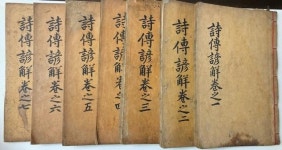 詩傳諺解卷之一
詩傳諺解卷之二
詩傳諺解卷之三
詩傳諺解卷之四
詩傳諺解卷之五
詩傳諺解卷之六
詩傳諺解卷之七